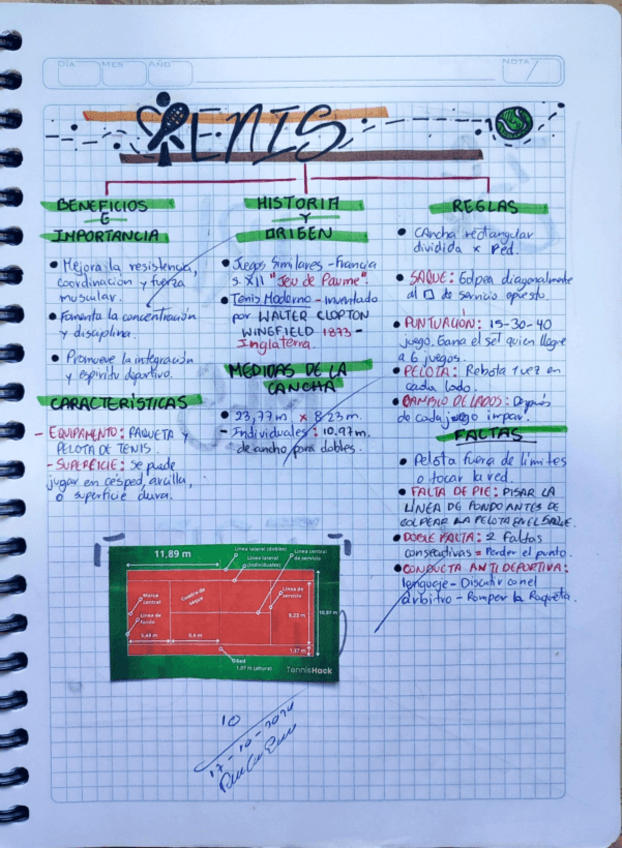 DÍA
MES
AÑO
NOTA
TENIS
BENEFICIOS
E
IMPORTANCIA
• Mejora la resistencia,
coordinacion y fuerza
muscular.
• Fomenta la concentración
y disciplina.
• Promueve la integración
y espiritu deportivo.
CARACTERÍSTICAS
- EQUIPAMENTO: RAQUETA Y
PELOTA DE TENIS.
- SUPERFICIE: se puede
jugar en césped, arcilla,
o superficie dura.
HISTORIA
Y
ORIGEN
• Juegos Similares - Francia
s. XII "Jeu de Paume".
• Tenis Moderno - inventado
por WALTER CLOPTON
WINGFIELD 1873 -
Inglaterra.
MEDIDAS DE LA
CANCHA
• 23,77 m x 8.23 m.
- Individuales: 10.97m.
de ancho para dobles.
REGLAS
• Cancha rectangular
dividida x red.
• SAQUE: Golpea diagonalmente
al □ de servicio opuesto.
• PUNTUACIÓN: 15-30-40
juego. Gana el set quien llegue
a 6 juegos.
• PELOTA: Rebota 1 vez en
cada lado.
• CAMBIO DE LADOS: Después
de cada juego impar.
FALTAS
• Pelota fuera de límites
o tocar la red.
• FALTA DE PIE: PISAR LA
LÍNEA DE FONDO ANTES DE
GOLPEAR LA PELOTA EN EL SAQUE.
• DOBLE FALTA: 2 Faltas
consecutivas = Perder el punto.
• CONDUCTA ANTIDEPORTIVA:
lenguaje - Discutir con el
árbitro - Romper la Raqueta.
11,89 m
Línea lateral (dobles)
Línea lateral
(individuales)
Línea central
de servicio
Marca
central
Cuadro de
saque
Línea de
servicio
Línea de
fondo
8,23 m
10,97 m
5,49 m
6,4 m
1,37 m
Red
1,07 m (altura)
TennisHack
10
17-10-2024